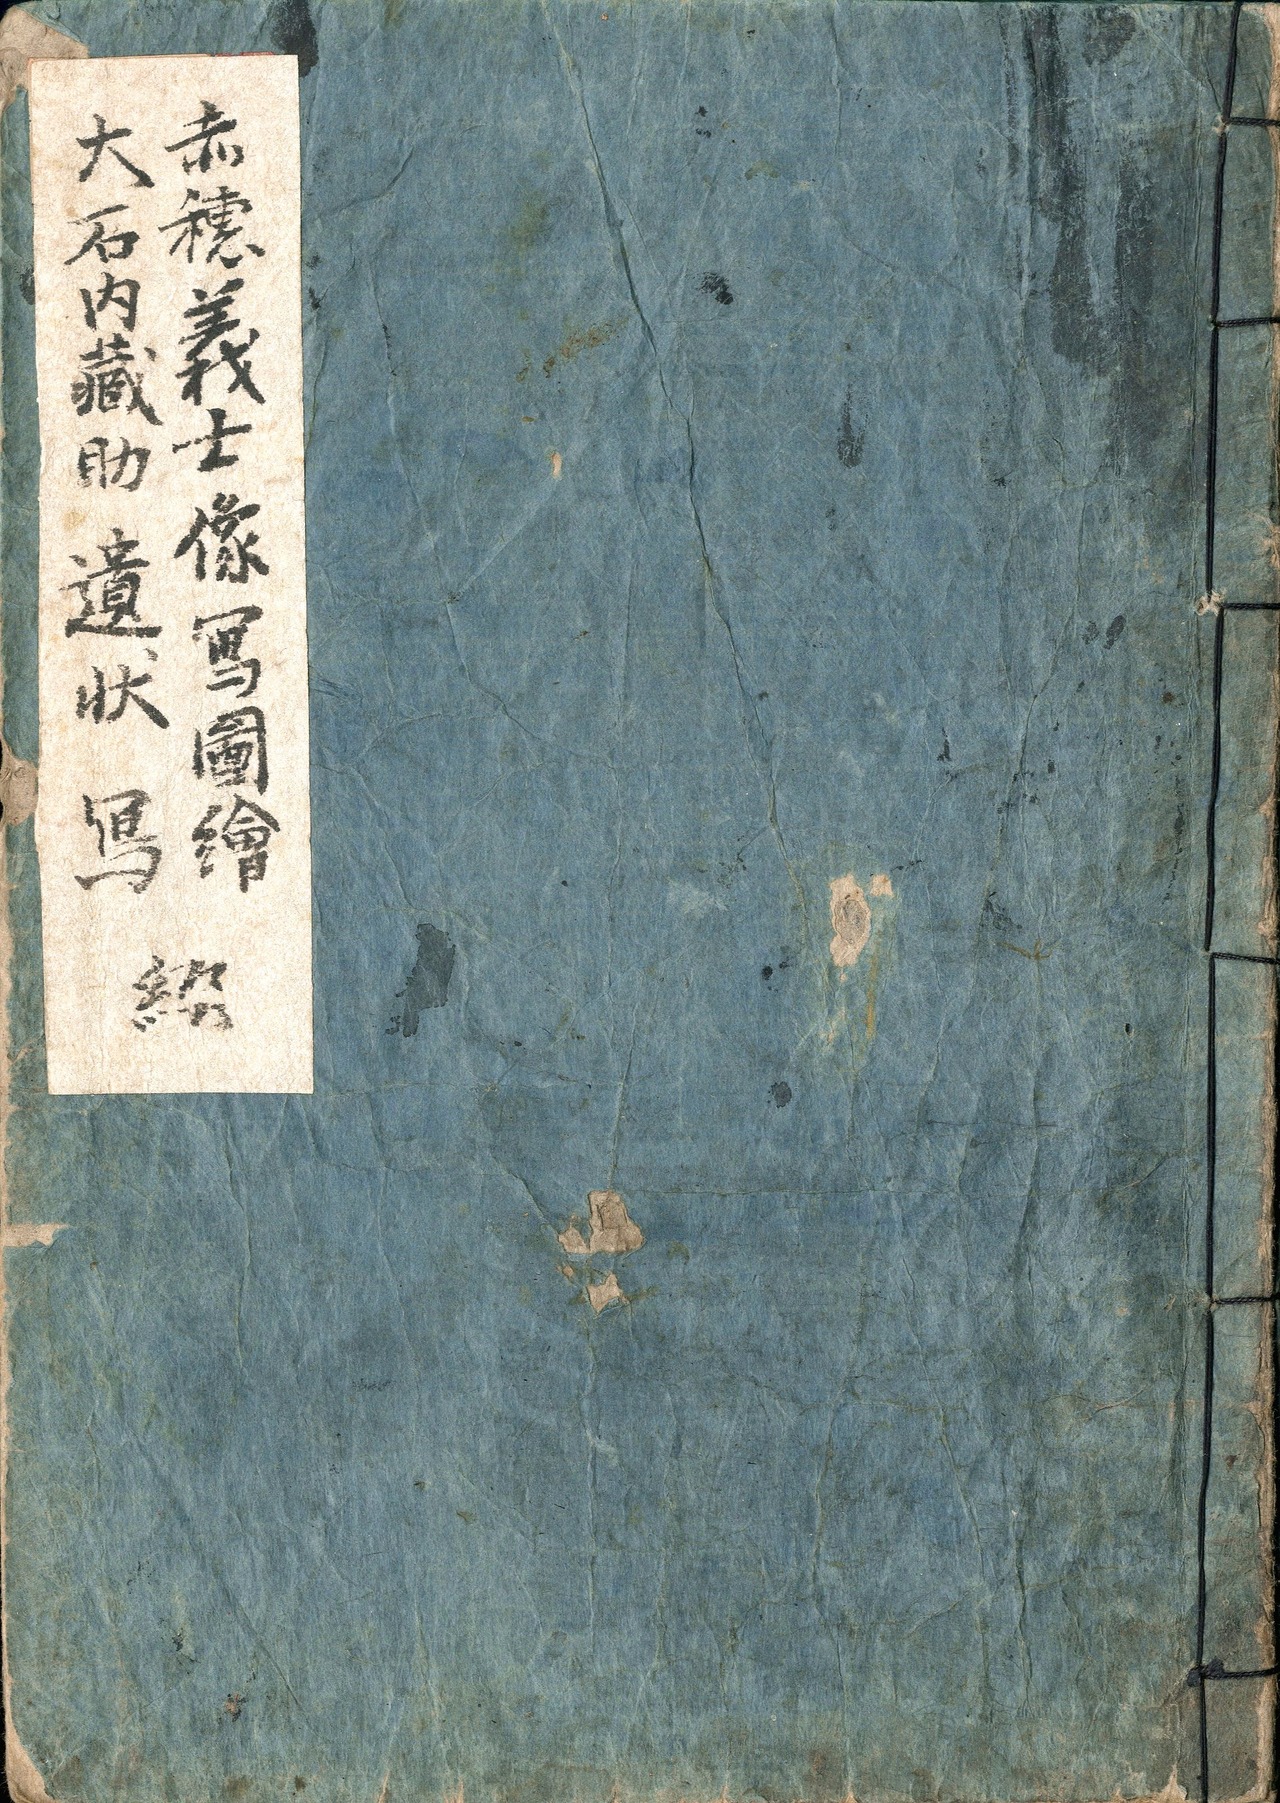 赤穗義士像写圖繪
大石内藏助遺状 写